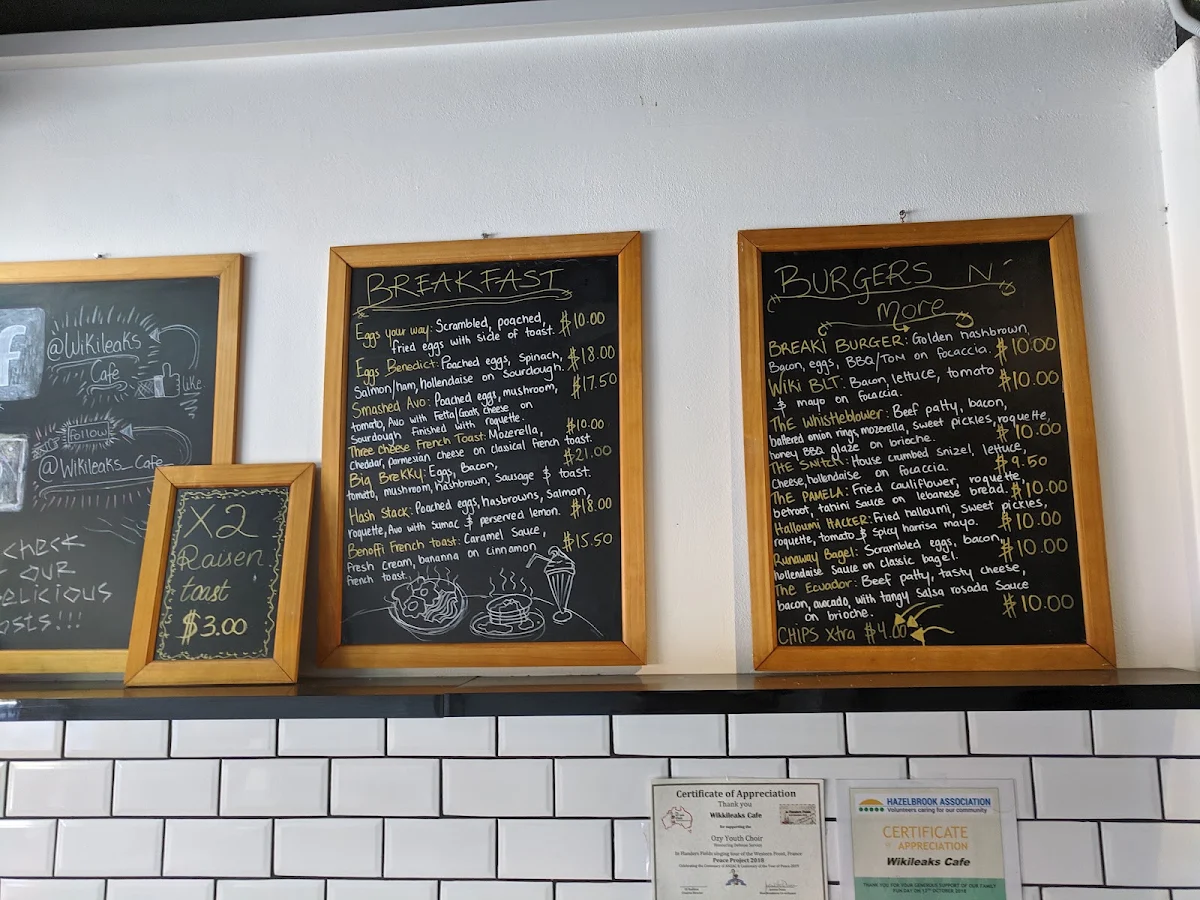 f
@Wikileaks
Cafe
like
Follow
@Wikileaks_Cafe
check
OUR
elicious
osts!!!
X2
Raisen
toast
$3.00
BREAKFAST
Eggs your way: Scrambled, poached, $10.00
fried eggs with side of toast.
Eggs Benedict: Poached eggs, Spinach, $18.00
Salmon/ham, hollendaise on Sourdough.
Smashed Avo: Poached eggs, mushroom, $17.50
tomato, Avo with Fetta/Goats cheese on
Sourdough finished with roquette.
Three cheese French Toast: Mozerella, $10.00
cheddar, Parmesian cheese on classical French toast.
Big Brekky: Eggs, Bacon, $21.00
tomato, mushroom, hashbrown, Sausage & toast.
Hash Stack: Poached eggs, hasbrowns, Salmon, $18.00
roquette, Avo with Sumac & perserved lemon.
Benoffi French toast: Caramel Sauce, $15.50
fresh cream, bananna on cinnamon
french toast.
BURGERS N'
more
BREAKI BURGER: Golden hashbrown,
Bacon, eggs, BBQ/TOM on focaccia. $10.00
Wiki BLT: Bacon, lettuce, tomato $10.00
& mayo on focaccia.
THE Whistleblower: Beef patty, bacon,
battered onion rings, mozerella, sweet pickles, roquette,
honey BBQ glaze on brioche. $10.00
THE SNITCH: House crumbed snizel, lettuce,
cheese, hollendaise on focaccia. $9.50
THE PAMELA: Fried cauliflower, roquette,
betroot, tahini sauce on lebanese bread. $10.00
Halloumi HACKER: Fried halloumi, sweet pickles,
roquette, tomato & spicy harrisa mayo. $10.00
Runaway Bagel: Scrambled eggs, bacon,
hollendaise Sauce on classic bagel. $10.00
The Ecuador: Beef patty, tasty cheese,
bacon, avocado, with tangy Salsa rosada Sauce
on brioche. $10.00
CHIPS Xtra $4.00
Certificate of Appreciation
Thank you
Wikkileaks Cafe
for supporting the
Ozy Youth Choir
In Flanders Fields singing tour of the Western Front, France
Peace Project 2018
HAZELBROOK ASSOCIATION
Volunteers caring for our community
CERTIFICATE
APPRECIATION
Wikileaks Cafe
THANK YOU FOR YOUR GENEROUS SUPPORT OF OUR FAMILY
FUN DAY ON 13TH OCTOBER 2018